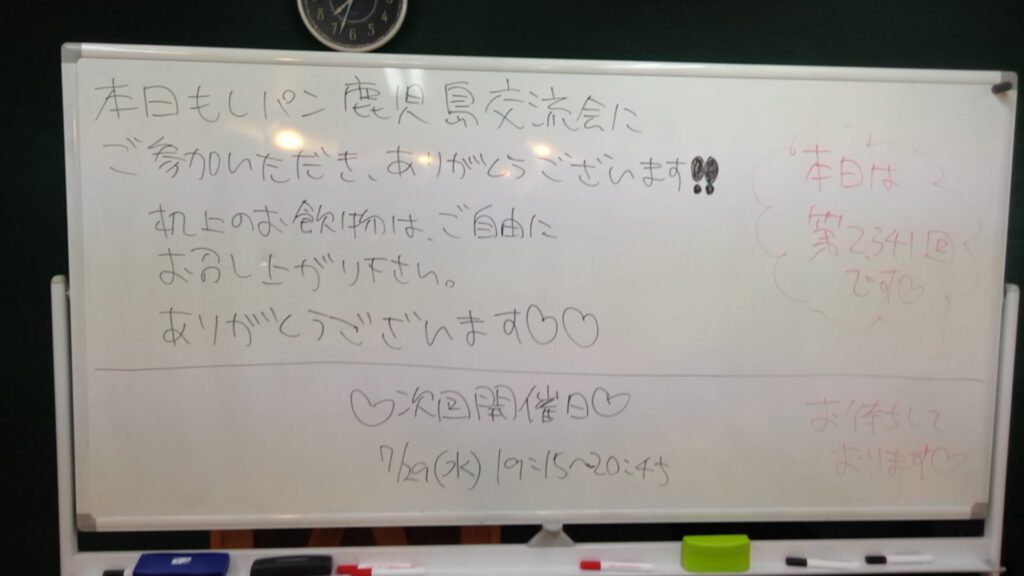 本日もしパン鹿児島交流会に
ご参加いただき、ありがとうございます!!
机上のお飲物は、ご自由に
お召し上がり下さい。
ありがとうございます♡♡
本日は
第2,341回
です♡
♡次回開催日♡
7/29(水) 19:15〜20:45
お待ちして
おります♡